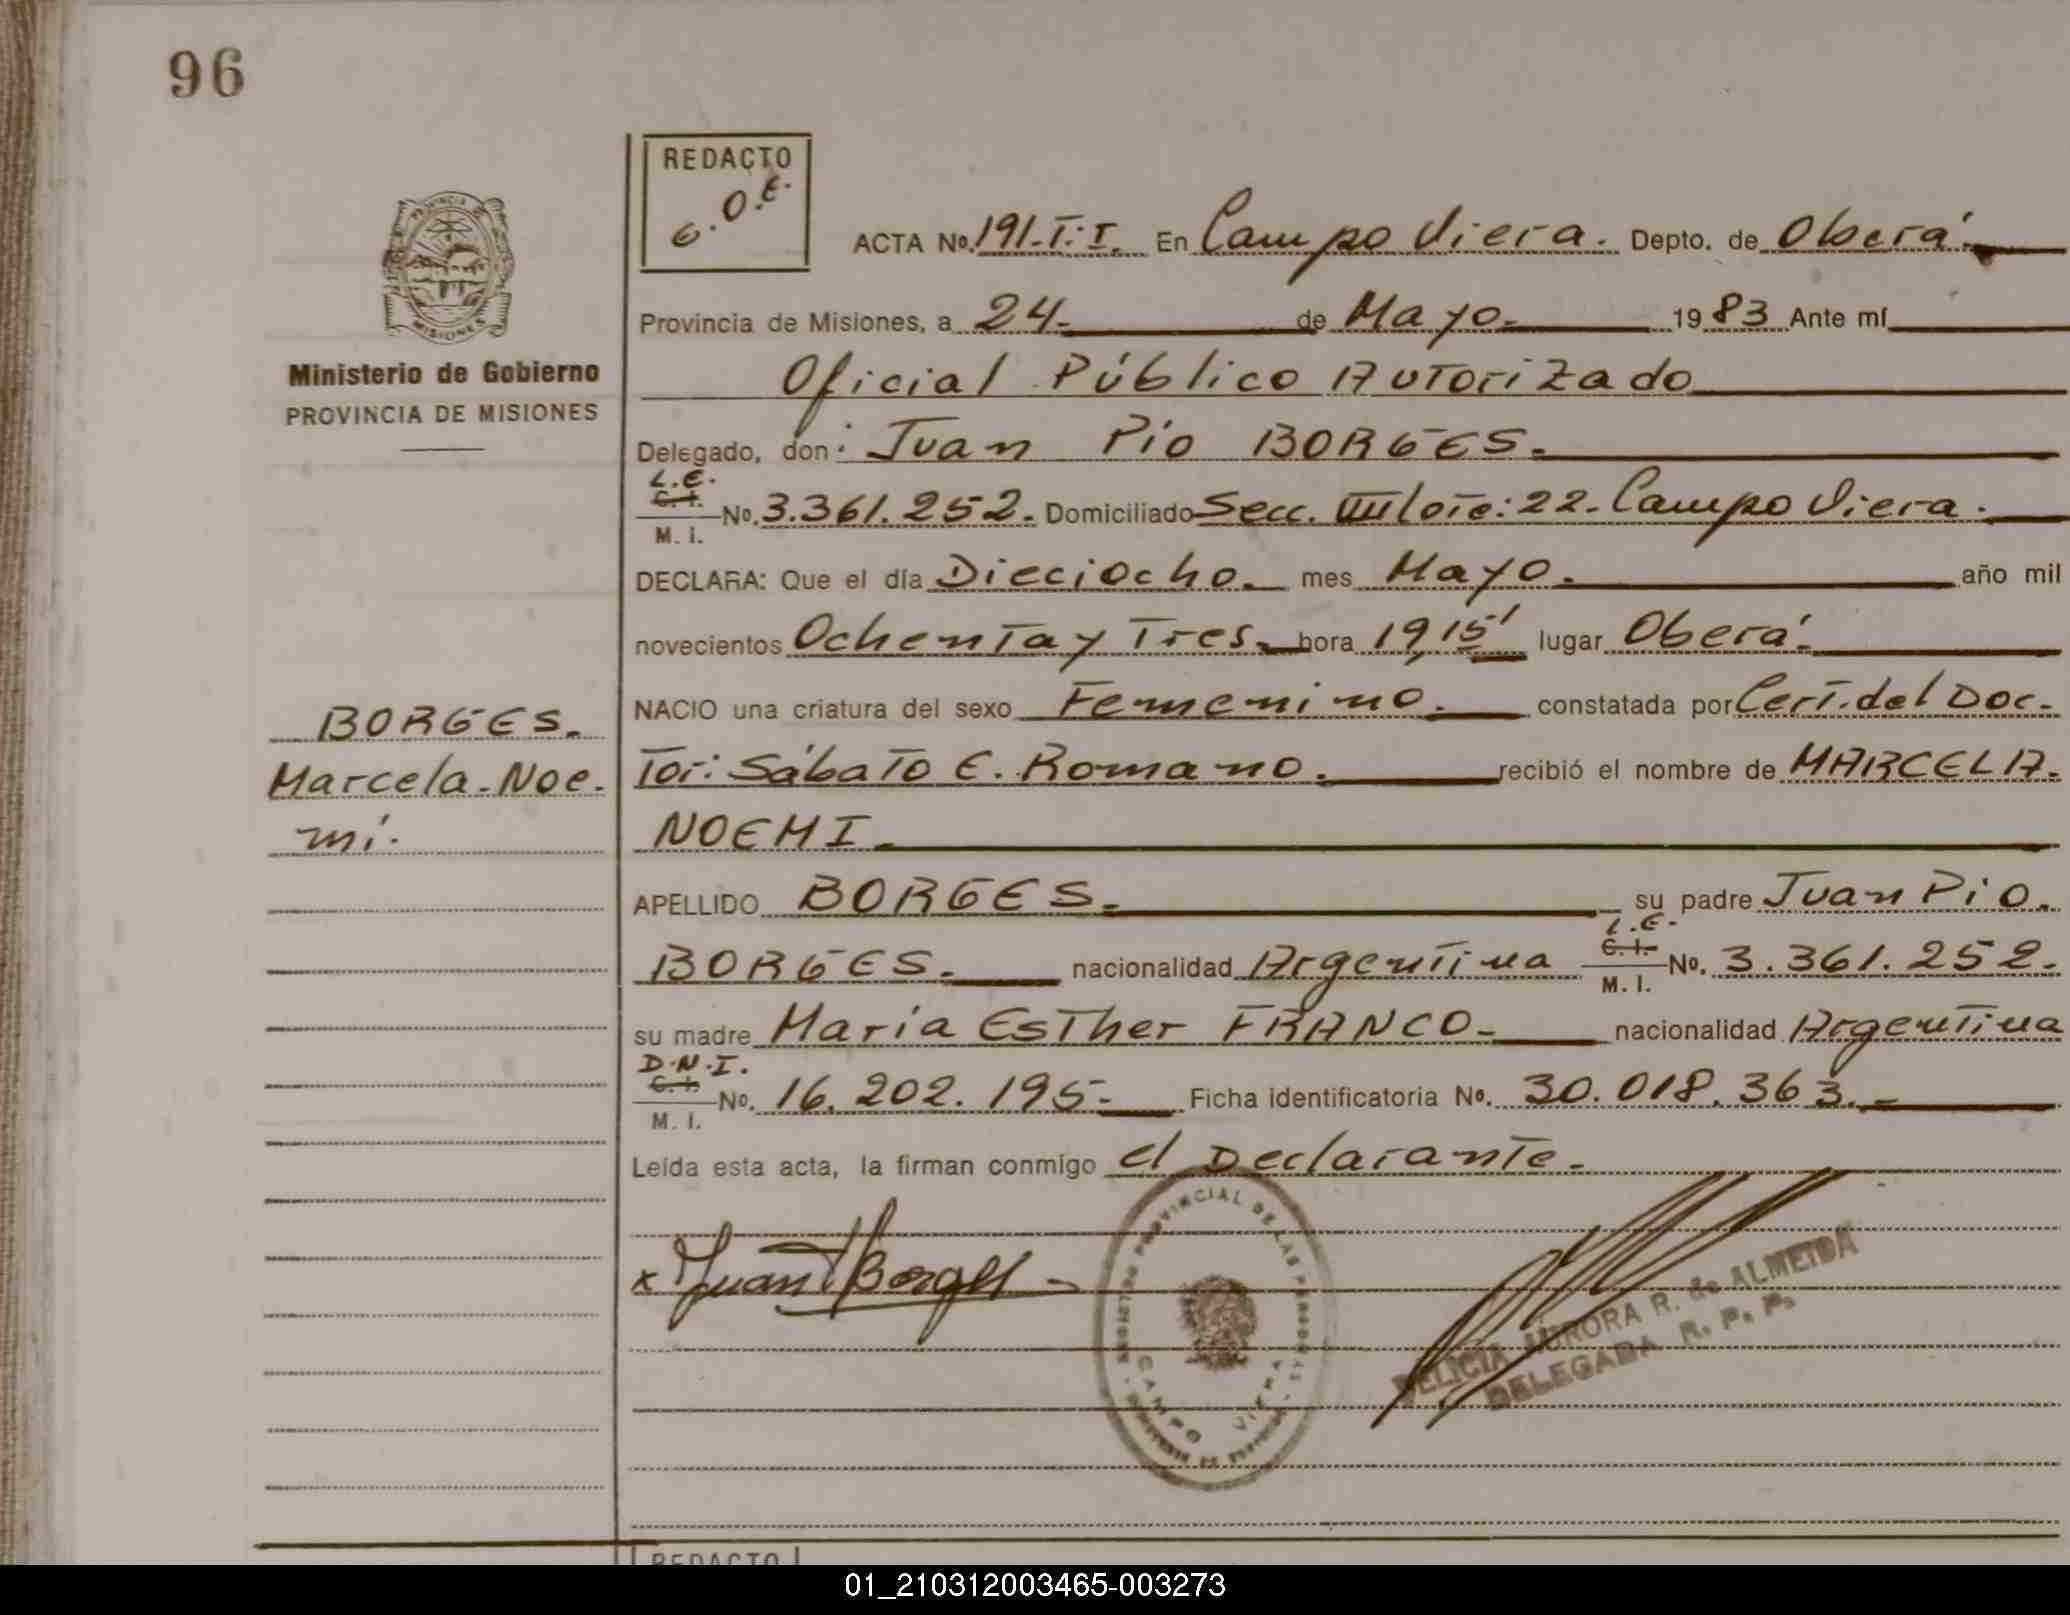 96
REDACTO
E.O.E.
PROVINCIA DE
MISIONES
Ministerio de Gobierno
PROVINCIA DE MISIONES
ACTA No. 191.T.I. En Campo Viera. Depto. de Oberá.
Provincia de Misiones, a 24. de Mayo. 1983 Ante mí
Oficial Público Autorizado
Delegado, don: Juan Pio BORGES.
L.E.
C. I.
M. I.
No. 3.361.252. Domiciliado Secc. VIII lote: 22. Campo Viera.
DECLARA: Que el día Dieciocho. mes Mayo. año mil
novecientos Ochenta y Tres. hora 19,15' lugar Oberá.
NACIO una criatura del sexo Femenino. constatada por Cert. del Doc.
tor: Sábato E. Romano. recibió el nombre de MARCELA.
NOEMI.
APELLIDO BORGES. su padre Juan Pio.
L.E.
C. I.
M. I.
BORGES. nacionalidad Argentina No. 3.361.252.
su madre María Esther FRANCO. nacionalidad Argentina
D.N.I.
C. I.
M. I.
No. 16.202.195. Ficha identificatoria No. 30.018.363.
Leída esta acta, la firman conmigo el Declarante.
BORGES.
Marcela Noe.
mí.
x Juan P Borges
PROVINCIAL DE LAS PERSONAS
CAMPO VIERA
DELICIA AURORA R. de ALMEIDA
DELEGADA R. P. P.
REDACTO
01_210312003465-003273